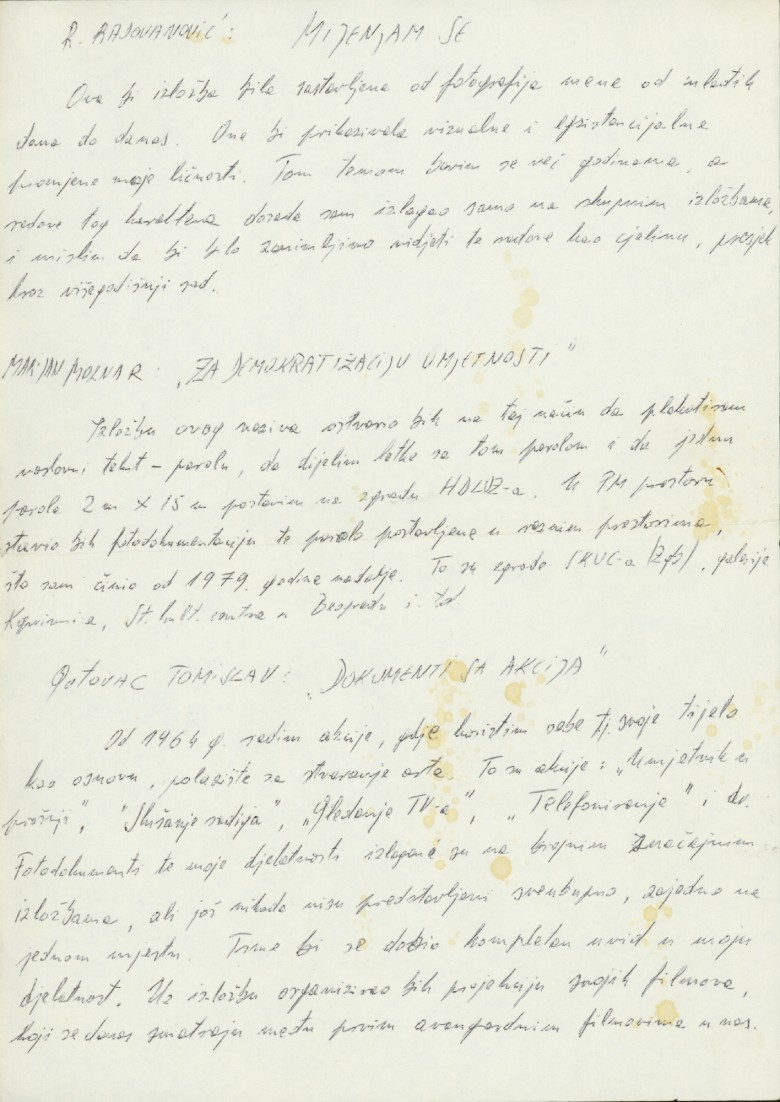 R. RADOVANOVIĆ: MIJENJAM SE
Ova bi izložba bila sastavljena od fotografija mene od mladih
dana do danas. Ona bi prikazivala vizualne i egzistencijalne
promjene moje ličnosti. Tom temom bavim se već godinama, a
radove tog karaktera dosada sam izlagao samo na skupnim izložbama,
i mislim da bi bilo zanimljivo vidjeti te radove kao cjelinu, presjek
kroz višegodišnji rad.
MARIJAN MOLNAR: „ZA DEMOKRATIZACIJU UMJETNOSTI"
Izložbu ovog naziva ostvario bih na taj način da plakatiram
naslovni tekst – parolu, da dijelim letke sa tom parolom i da jednu
parolu 2 m X 15 m postavim na zgradu HDLUZ-a. U PM prostoru
stavio bih fotodokumentaciju te parole postavljene u raznim prostorima,
što sam činio od 1979. godine nadalje. To su zgrada SKUC-a /Zgb/, galerija
Koprivnica, St. kult. centra u Beogradu i. td
GOTOVAC TOMISLAV: „DOKUMENTI SA AKCIJA"
Od 1964 g. radim akcije, gdje koristim sebe tj. svoje tijelo
kao osnovu, polazište za stvaranje arta. To su akcije: „Umjetnik u
prošnji", "Slušanje radija", „Gledanje TV-a", „Telefoniranje" i dr.
Fotodokumenti te moje djelatnosti izlagani su na brojnim značajnim
izložbama, ali još nikada nisu predstavljeni sveukupno, zajedno na
jednom mjestu. Time bi se dobio kompletan uvid u moju
djelatnost. Uz izložbu organizirao bih projekciju svojih filmova,
koji se danas smatraju među prvim avangardnim filmovima u nas.